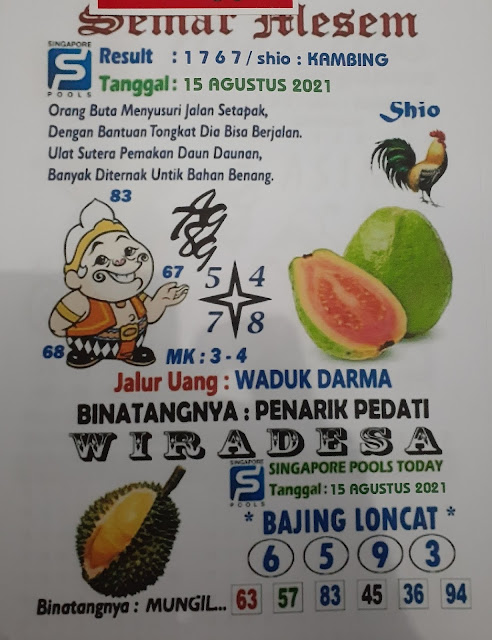 Semar Mesem
SINGAPORE
POOLS
Result : 1767/ shio : KAMBING
Tanggal : 15 AGUSTUS 2021
Orang Buta Menyusuri Jalan Setapak,
Dengan Bantuan Tongkat Dia Bisa Berjalan.
Ulat Sutera Pemakan Daun Daunan,
Banyak Diternak Untik Bahan Benang.
Shio
83
67
68
5 4
7 8
MK : 3 - 4
Jalur Uang : WADUK DARMA
BINATANGNYA : PENARIK PEDATI
WIRADESA
SINGAPORE
POOLS
SINGAPORE POOLS TODAY
Tanggal : 15 AGUSTUS 2021
* BAJING LONCAT *
6 5 9 3
Binatangnya : MUNGIL... 63 57 83 45 36 94